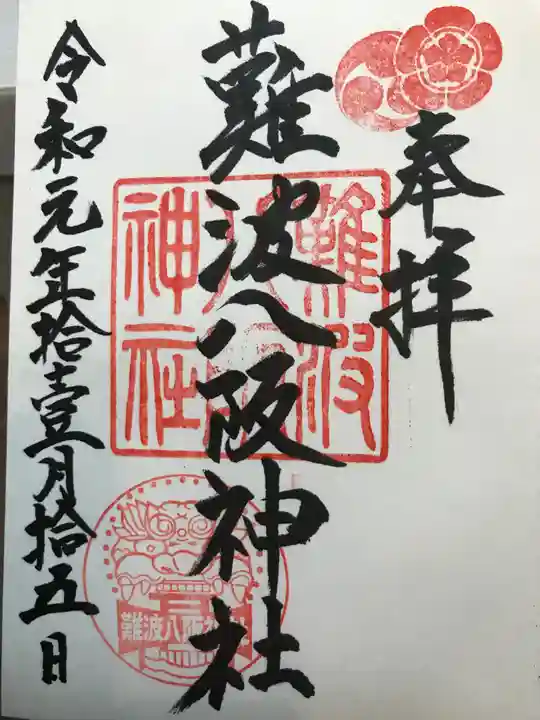 奉拝
難波八阪神社
難波
神社
難波八阪神社
令和元年拾壹月拾五日